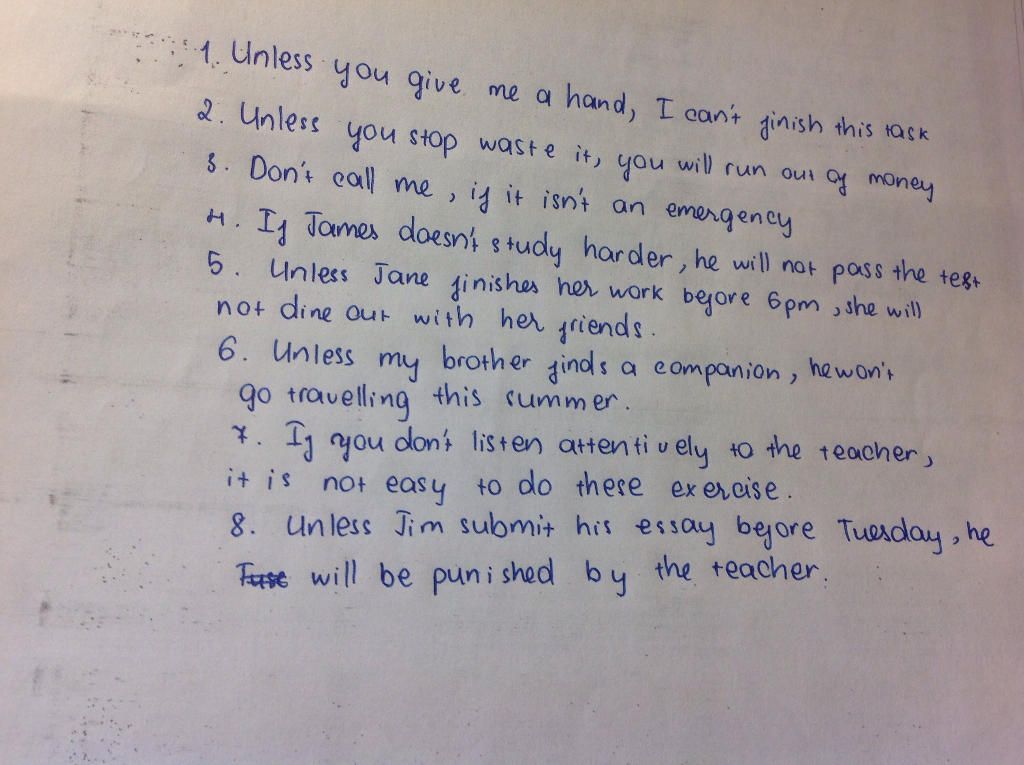 1. Unless you give me a hand, I can't finish this task
2. Unless you stop waste it, you will run out of money
3. Don't call me, if it isn't an emergency
4. If James doesn't study harder, he will not pass the test
5. Unless Jane finishes her work before 6pm, she will
not dine out with her friends.
6. Unless my brother finds a companion, he won't
go travelling this summer.
7. If you don't listen attentively to the teacher,
it is not easy to do these exercise.
8. Unless Jim submit his essay before Tuesday, he
will be punished by the teacher.